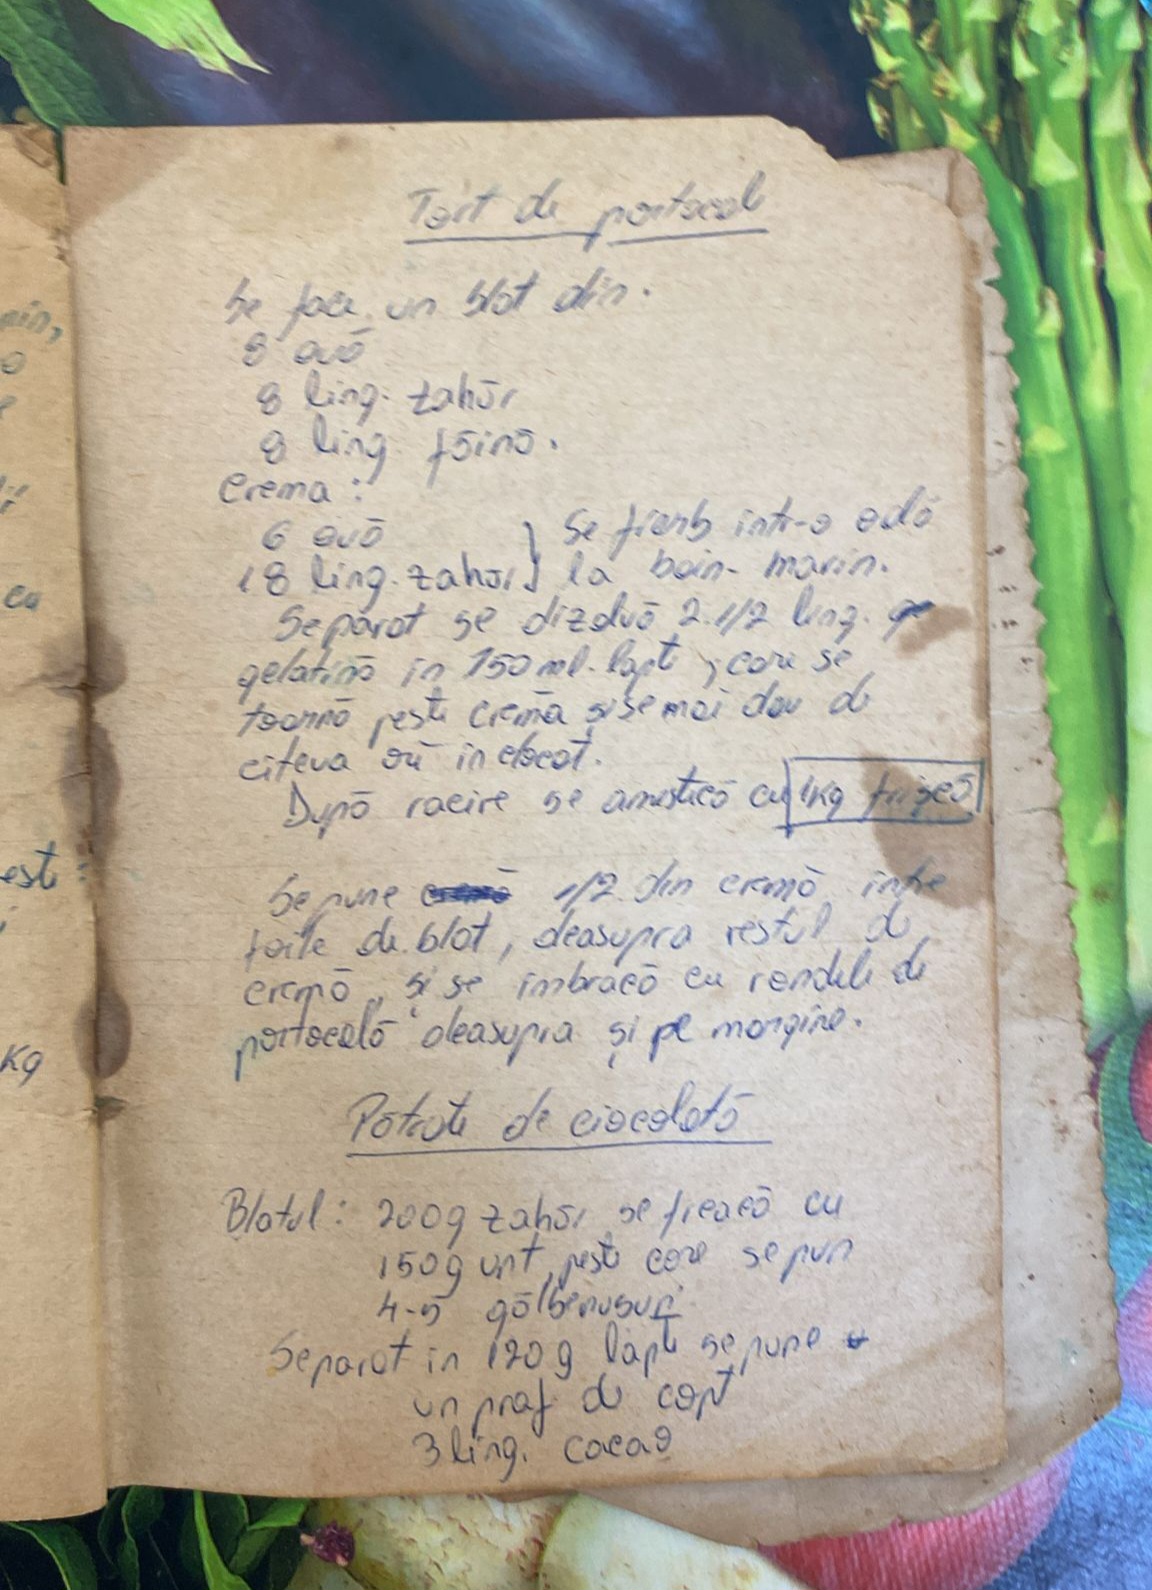 Tort de portocale
Se face un blat din.
8 ouă
8 ling. zahăr
8 ling făină.
Crema:
6 ouă } Se fierb intr-o oală
18 ling. zahăr } la bain-marin.
Separat se dizolvă 2.1/2 ling.
gelatină in 150 ml. lapte, care se
toarnă peste cremă și se mai dau de
citeva ori in clocot.
După racire se amestică cu 1Kg frișcă
Se pune 1/2 din cremă intre
foile de blat, deasupra restul de
cremă, și se imbracă cu rondele de
portocală deasupra și pe margine.
Pătrate de ciocolată
Blatul: 200g zahăr se freacă cu
150g unt, peste care se pun
4-5 gălbenusuri.
Separat in 120g lapte se pune
un praf de copt
3 ling. cacao
min,
cu
este:
Kg